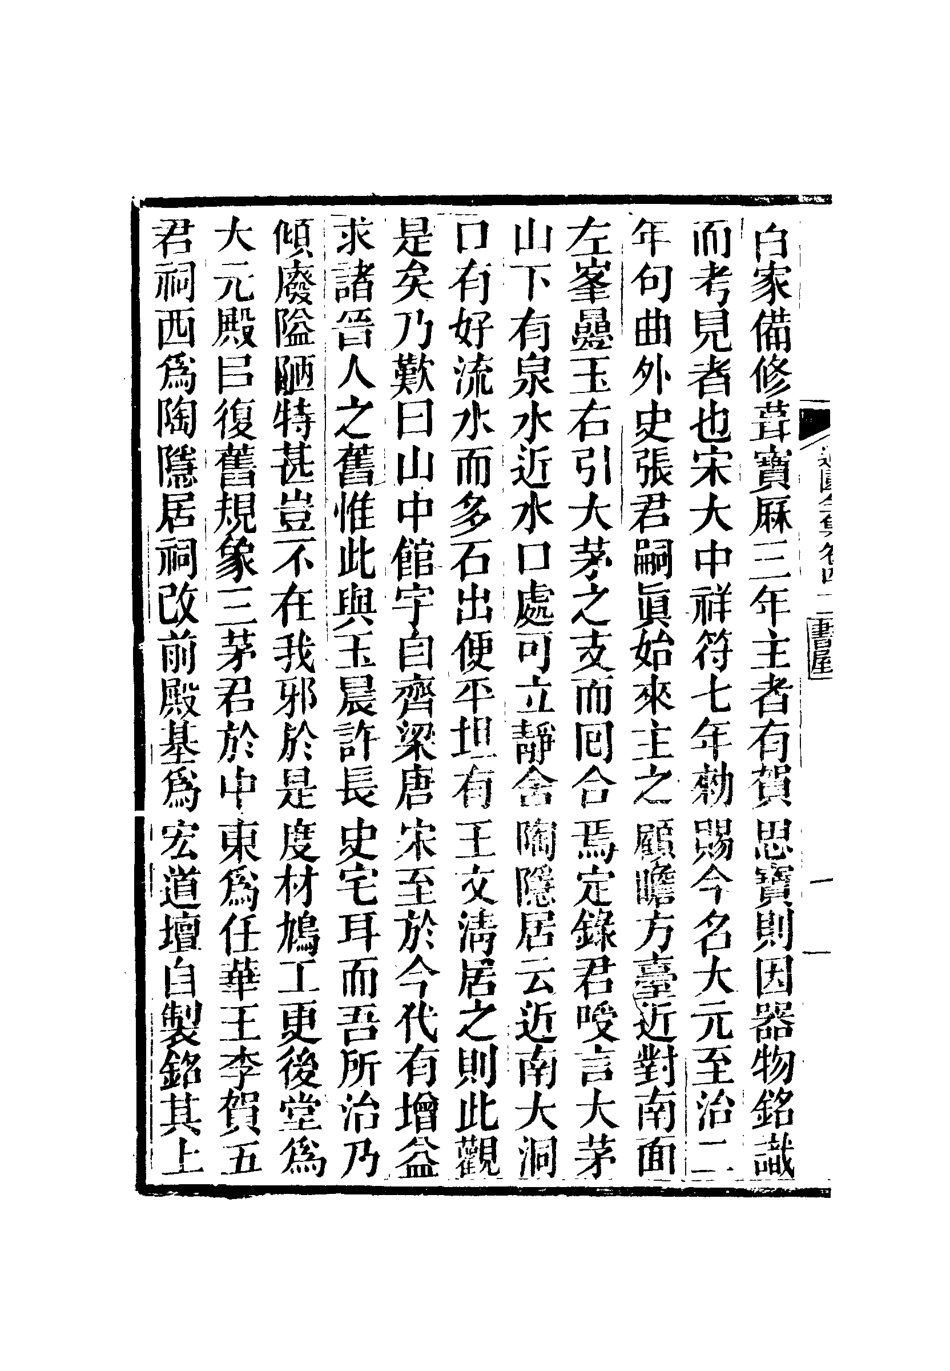 白家備修葺寶厤三年主者有賀思寶則因器物銘識
而考見者也宋大中祥符七年勑賜今名大元至治二
年句曲外史張君嗣眞始來主之顧瞻方臺近對南面
左峯疊玉右引大茅之支而囘合焉定錄君嘗言大茅
山下有泉水近水口處可立靜舍陶隱居云近南大洞
口有好流水而多石出便平坦有王文淸居之則此觀
是矣乃歎曰山中館宇自齊梁唐宋至於今代有增益
求諸晉人之舊惟此與玉晨許長史宅耳而吾所治乃
傾廢隘陋特甚豈不在我邪於是度材鳩工更後堂爲
大元殿㠯復舊規象三茅君於中東爲任華王李賀五
君祠西爲陶隱居祠改前殿基爲宏道壇自製銘其上
道園全集卷四二
書屋